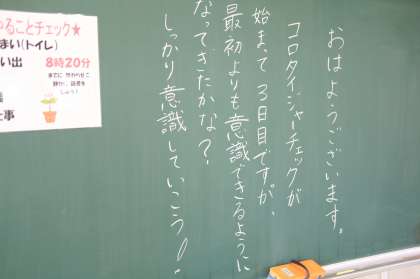 おはようございます。
コロタイジャーチェックが
始まって3日目ですが、
最初よりも意識できるように
なってきたかな？
しっかり意識していこう！
ることチェック★
まい(トイレ)
い出 8時20分
までに 終わらせて
静かに 読書を
しよう！
事